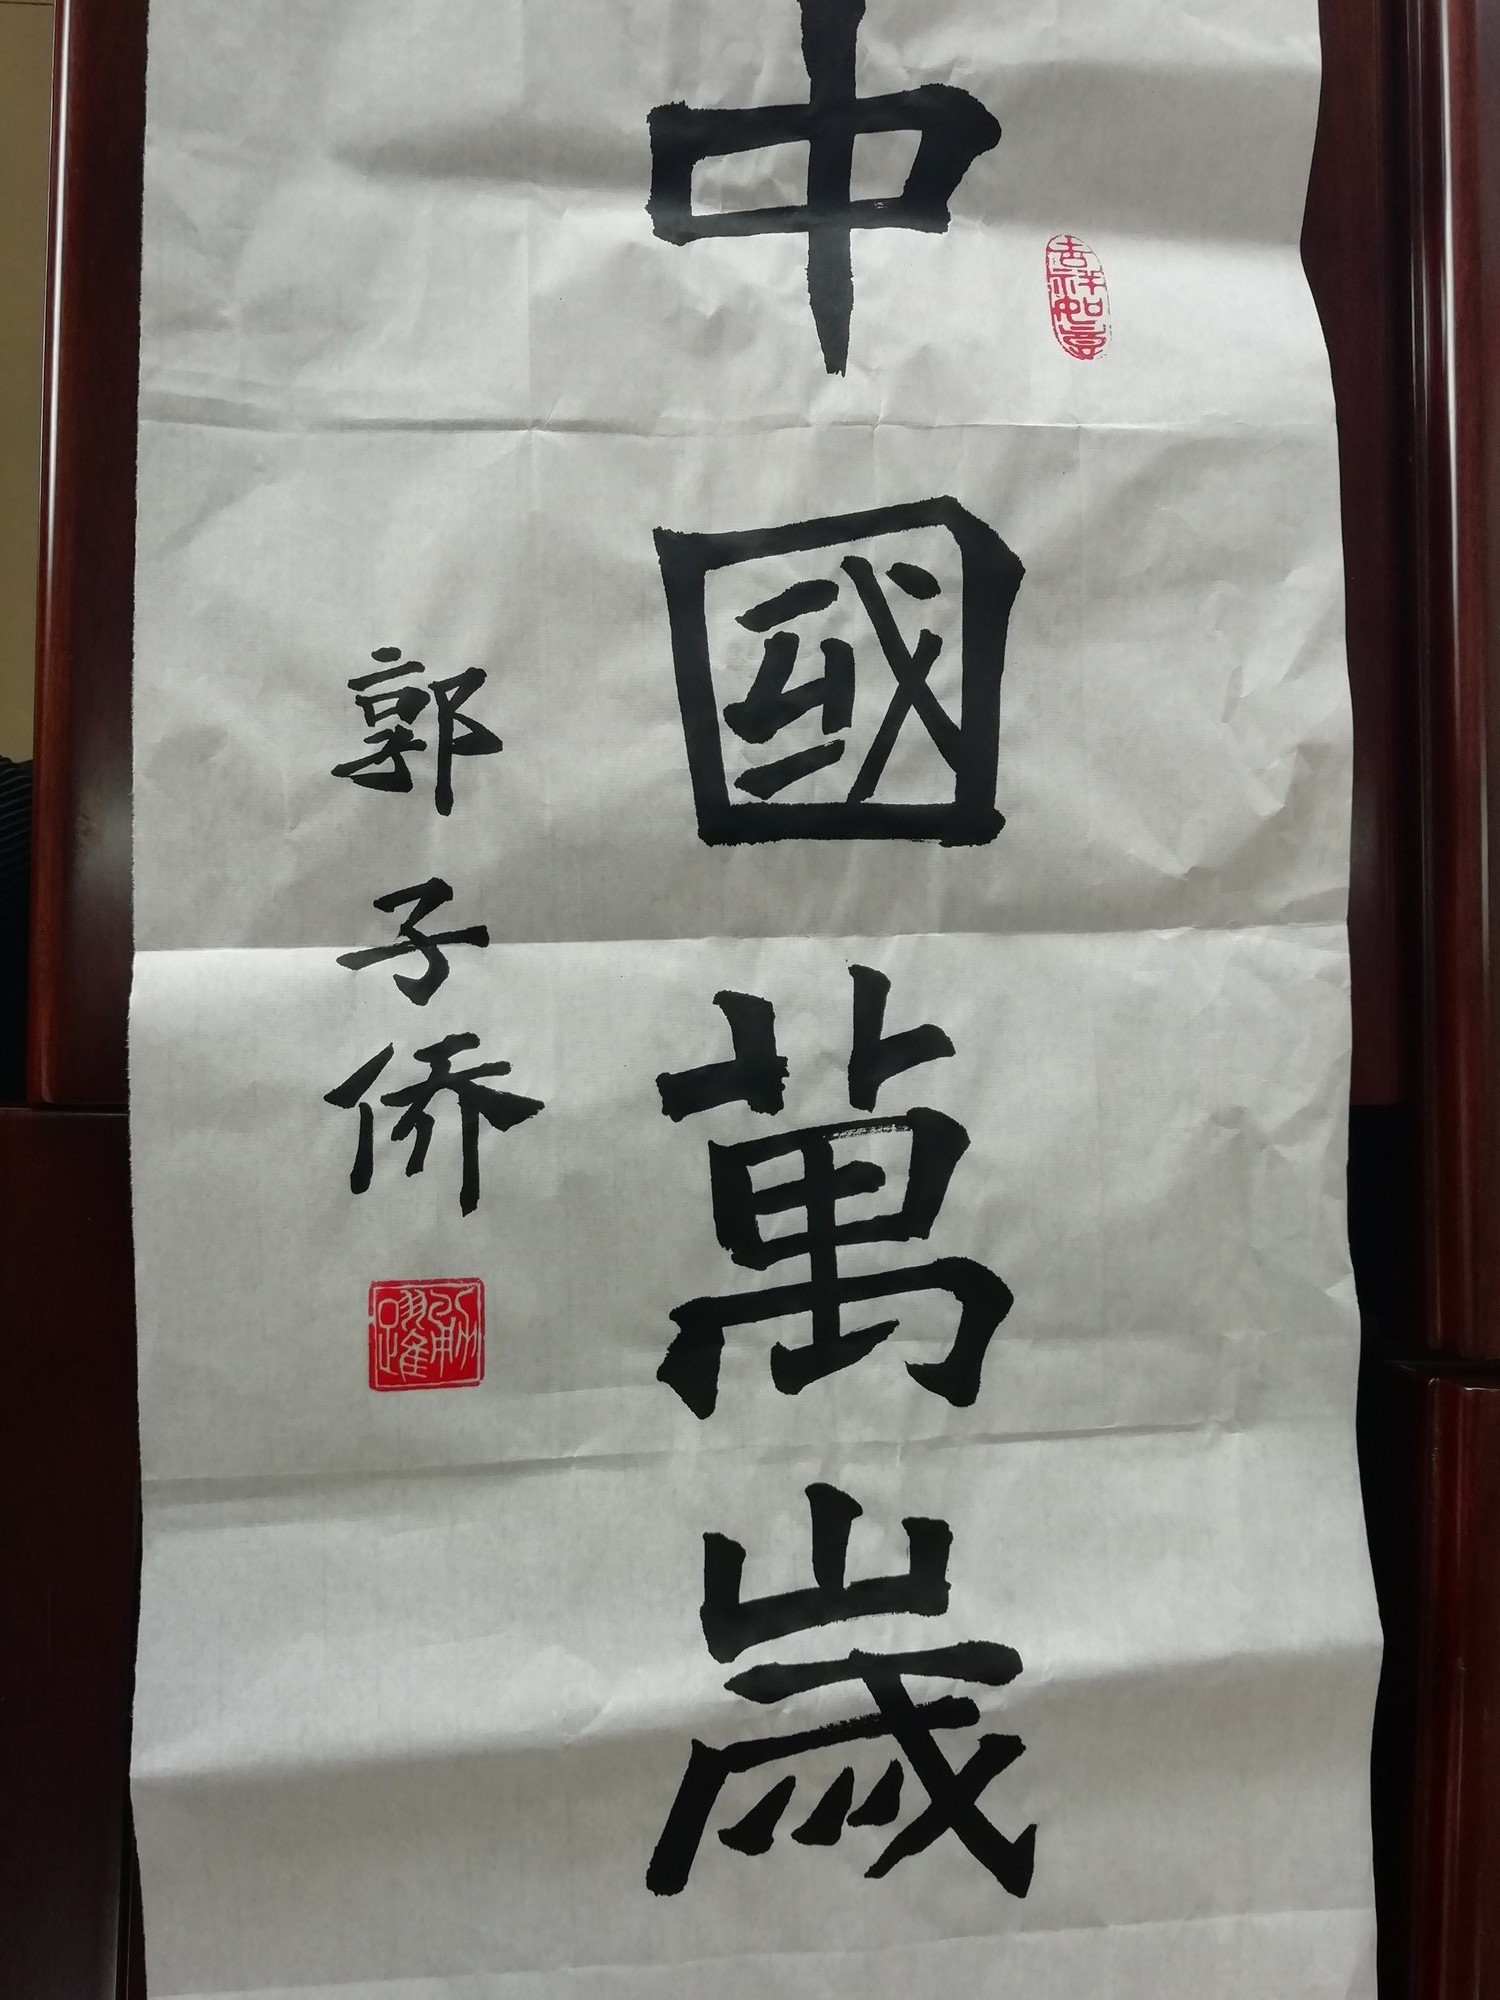 中國萬歲
吉祥如意
郭子侨